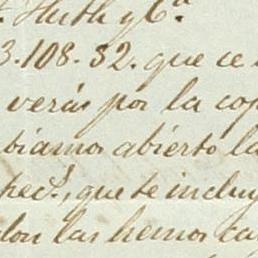 Huth y Cª.
3.108.32. que ce
verás por la cop
biamos abierto la
pec!., que te incluy
don las hemos ca